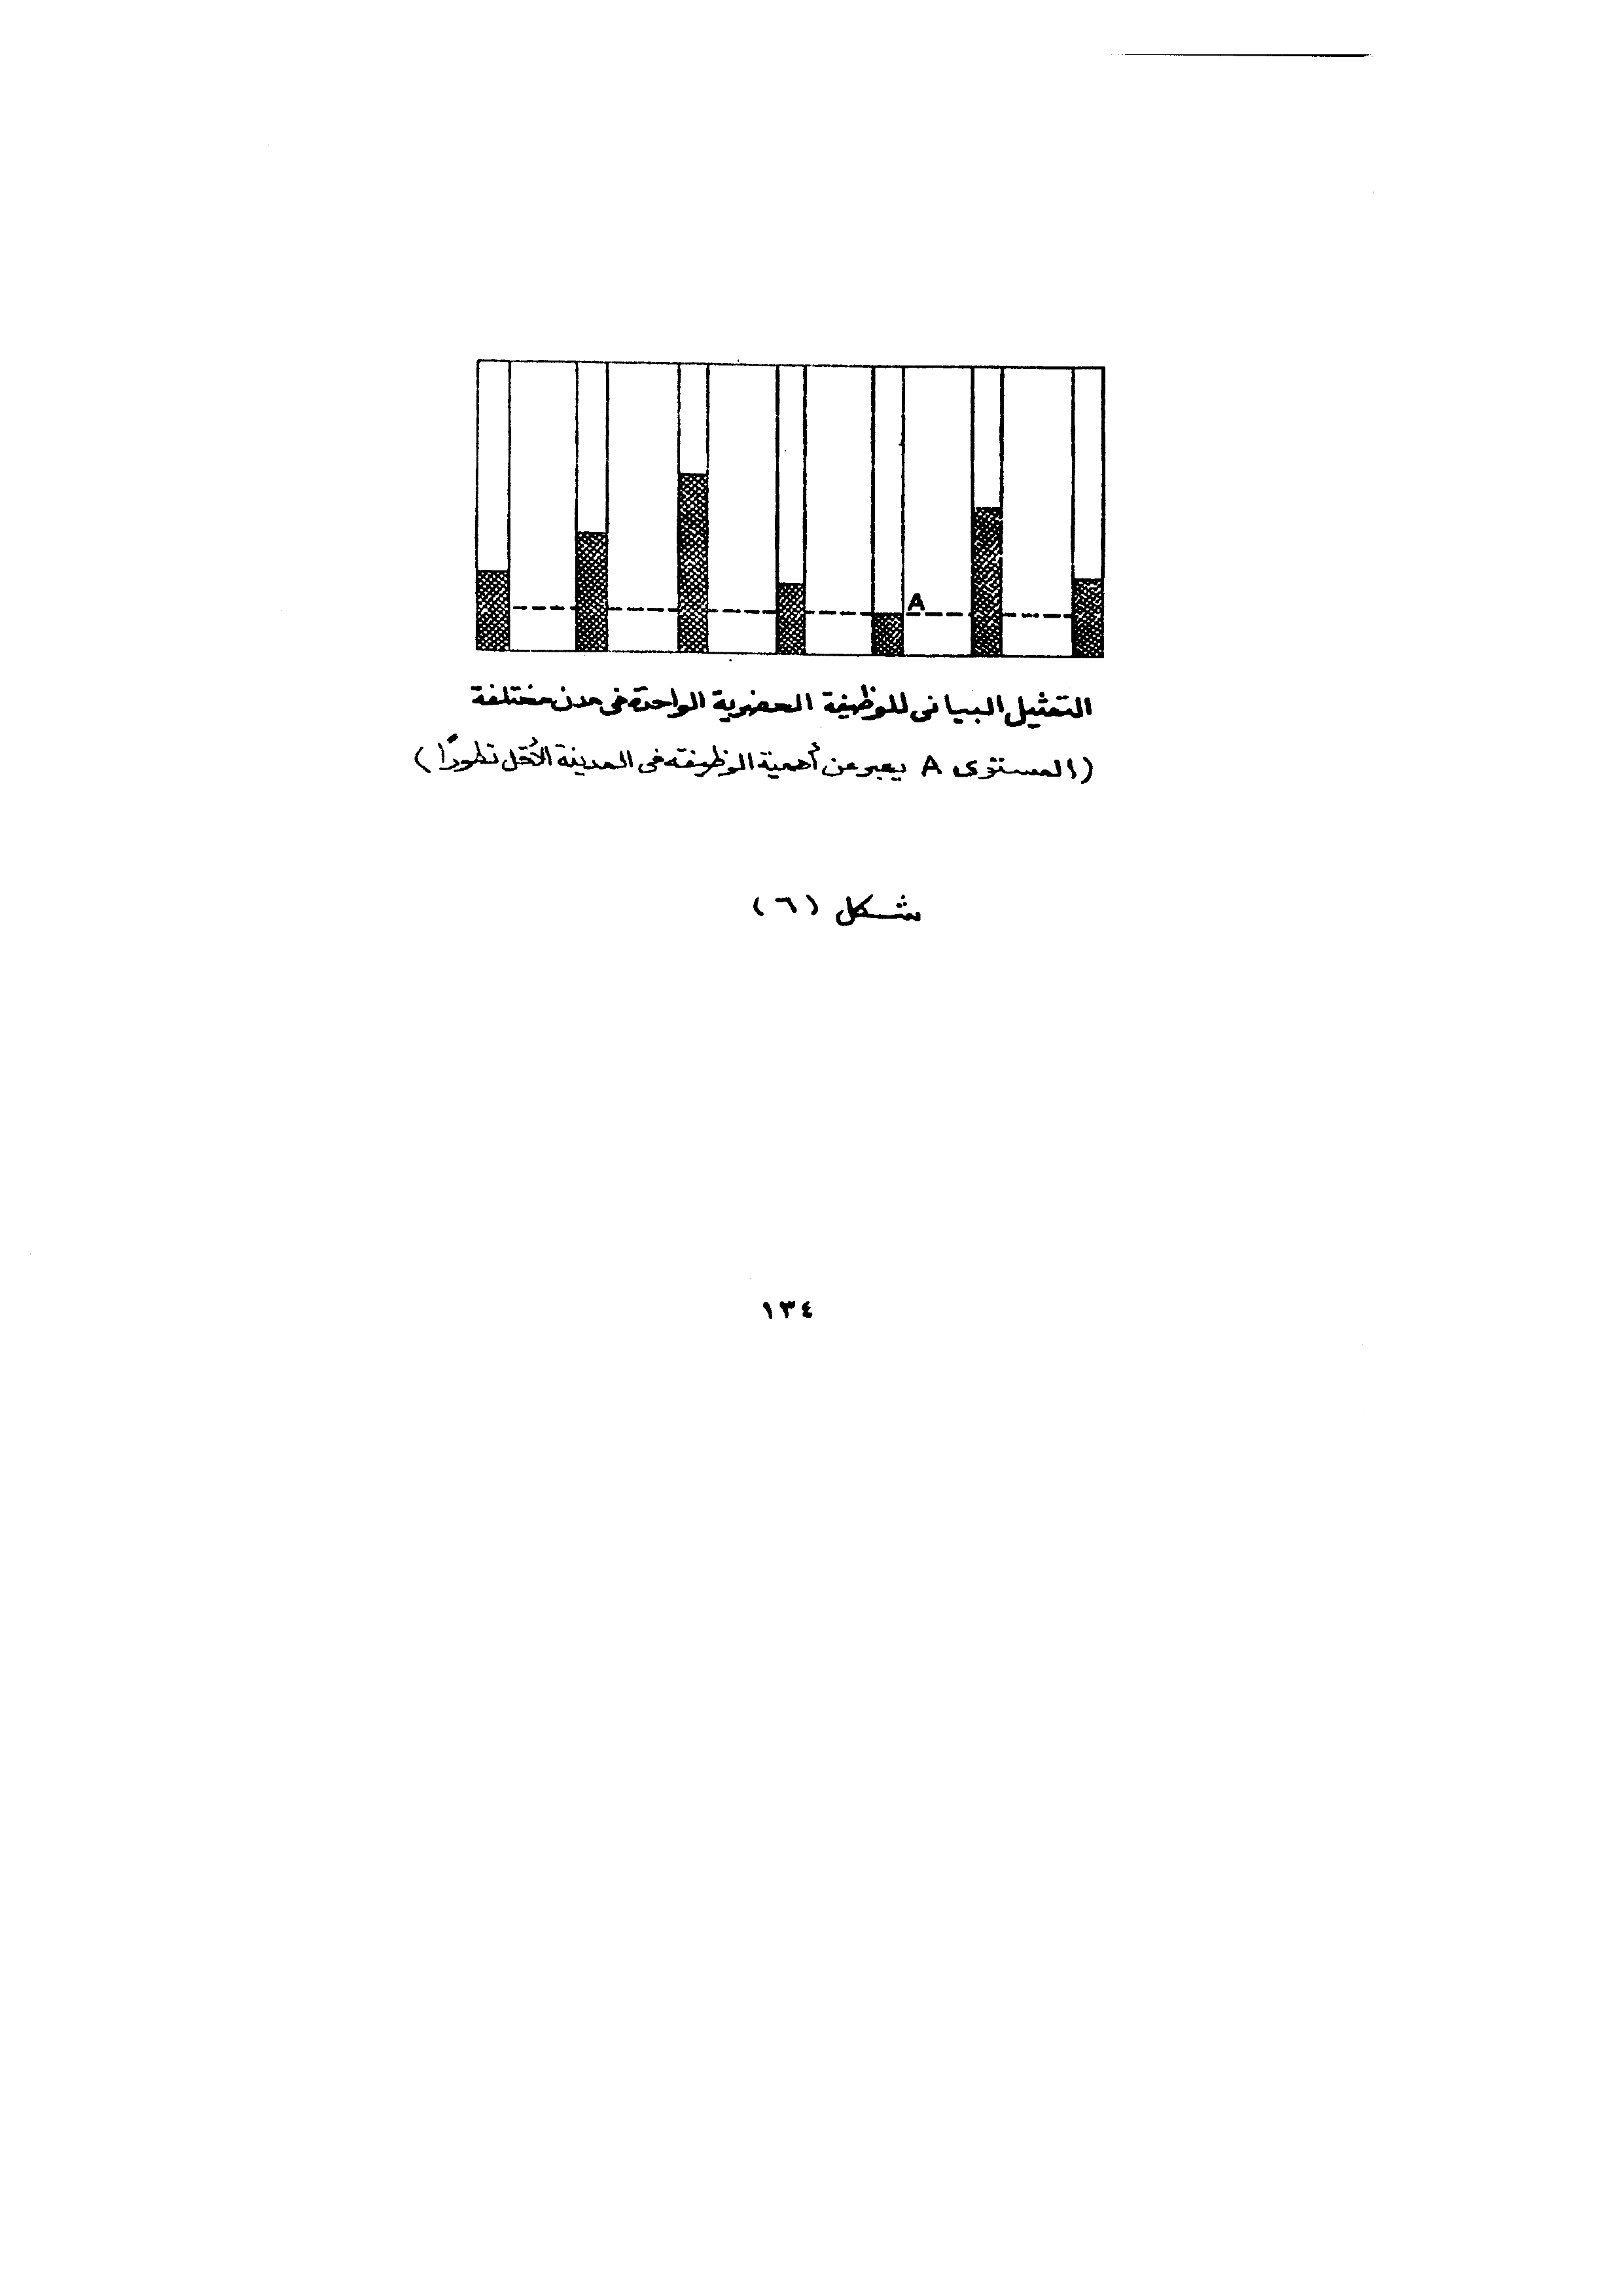 A
التمثيل البيانى للوظيفة الحضرية الواحدة فى مدن مختلفة
(المستوى A يعبر عن أهمية الوظيفة فى المدينة الأقل تطورًا)
شكل (٦)
١٣٤